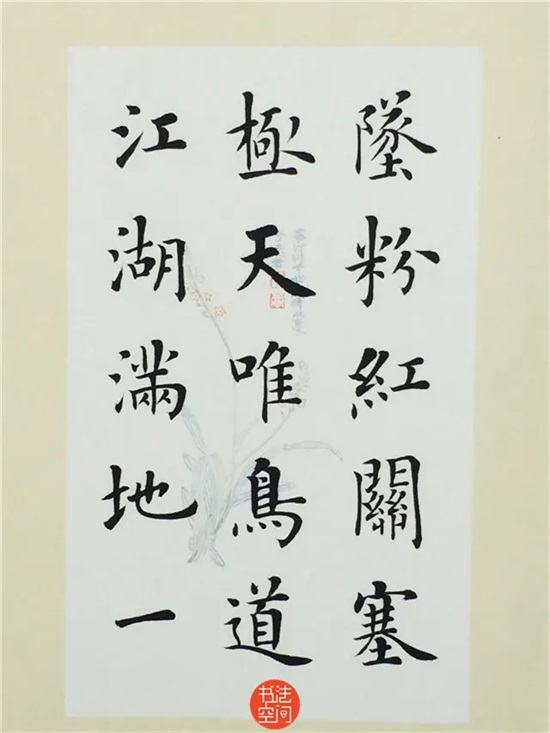 墜粉紅關塞
極天唯鳥道
江湖滿地一
书法
空间